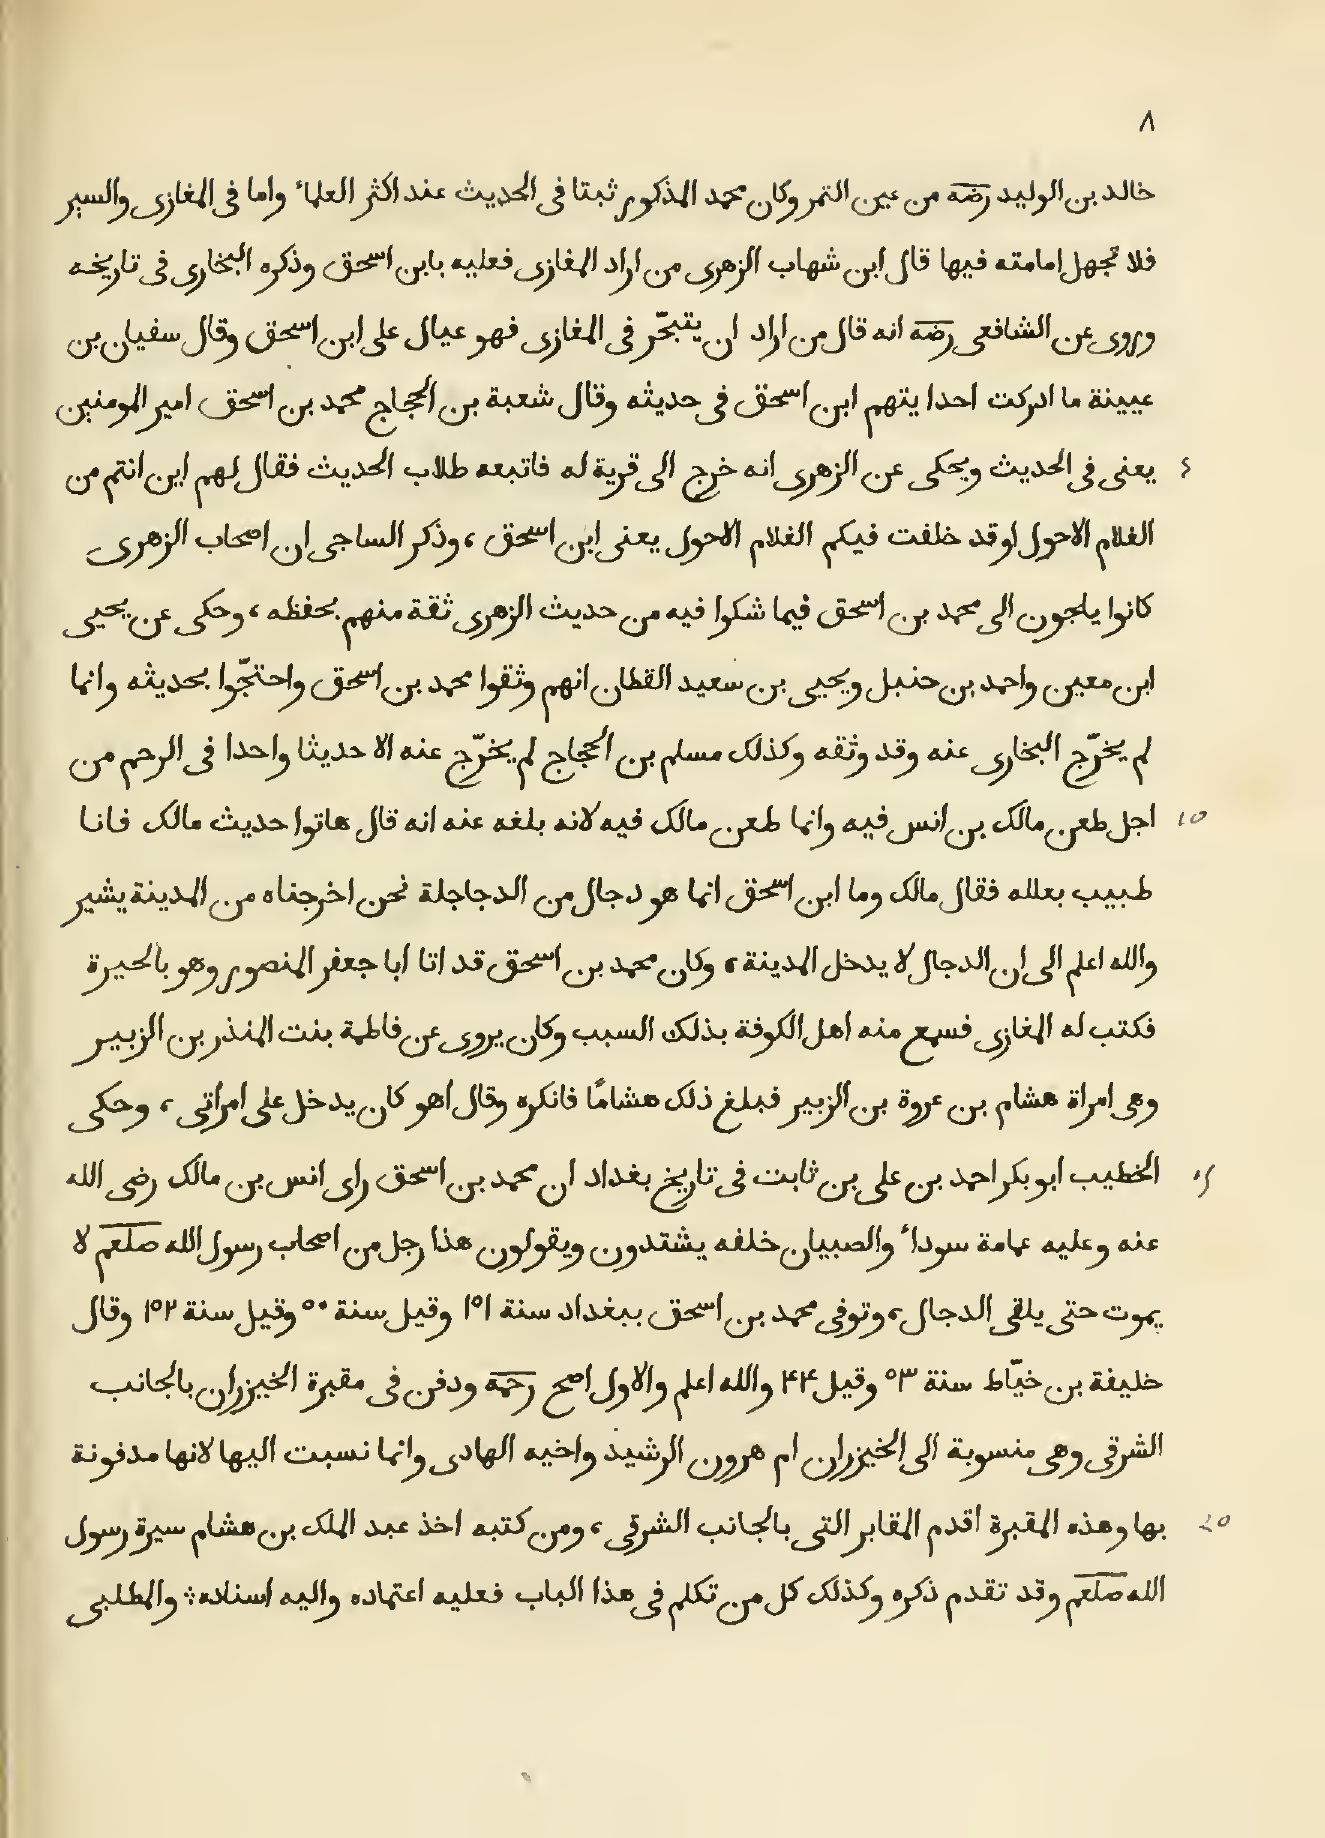 ٨
خالد بن الوليد رضه من عين التمر وكان محمد المذكور ثبتا فى الحديث عند اكثر العلماء واما فى المغازى والسير
فلا تجهل امامته فيها قال ابن شهاب الزهرى من اراد المغازى فعليه بابن اسحق وذكره البخارى فى تاريخه
وروى عن الشافعى رضه انه قال من اراد ان يتبحّر فى المغازى فهو عيال على ابن اسحق وقال سفيان بن
عيينة ما ادركت احدا يتهم ابن اسحق فى حديثه وقال شعبة بن الحجاج محمد بن اسحق امير المومنين
يعنى فى الحديث ويحكى عن الزهرى انه خرج الى قرية له فاتبعه طلاب الحديث فقال لهم اين انتم من
الغلام الاحول اوقد خلفت فيكم الغلام الاحول يعنى ابن اسحق ، وذكر الساجى ان اصحاب الزهرى
كانوا يلجون الى محمد بن اسحق فيما شكوا فيه من حديث الزهرى ثقة منهم بحفظه ، وحكى عن يحيى
ابن معين واحمد بن حنبل ويحيى بن سعيد القطان انهم وثقوا محمد بن اسحق واحتجّوا بحديثه وانما
لم يخرّج البخارى عنه وقد وثقه وكذلك مسلم بن الحجاج لم يخرّج عنه الا حديثا واحدا فى الرحم من
اجل طعن مالك بن انس فيه وانما طعن مالك فيه لانه بلغه عنه انه قال هاتوا حديث مالك فانا 10
طبيب بعلله فقال مالك وما ابن اسحق انما هو دجال من الدجاجلة نحن اخرجناه من المدينة يشير
والله اعلم الى ان الدجال لا يدخل المدينة ، وكان محمد بن اسحق قد اتا ابا جعفر المنصور وهو بالحيرة
فكتب له المغازى فسمع منه اهل الكوفة بذلك السبب وكان يروى عن فاطمة بنت المنذر بن الزبير
وهى امراة هشام بن عروة بن الزبير فبلغ ذلك هشامًا فانكره وقال اهو كان يدخل على امراتى ، وحكى
الخطيب ابو بكر احمد بن على بن ثابت فى تاريخ بغداد ان محمد بن اسحق راى انس بن مالك رضى الله
عنه وعليه عمامة سوداء والصبيان خلفه يشتدون ويقولون هذا رجل من اصحاب رسول الله صلعم لا
يموت حتى يلقى الدجال ، وتوفى محمد بن اسحق ببغداد سنة ١٥١ وقيل سنة ٥٠ وقيل سنة ١٥٢ وقال
خليفة بن خيّاط سنة ٥٣ وقيل ٤٤ والله اعلم والاول اصح رحمه ودفن فى مقبرة الخيزران بالجانب
الشرقى وهى منسوبة الى الخيزران ام هرون الرشيد واخيه الهادى وانما نسبت اليها لانها مدفونة
بها وهذه المقبرة اقدم المقابر التى بالجانب الشرقى ، ومن كتبه اخذ عبد الملك بن هشام سيرة رسول 20
الله صلعم وقد تقدم ذكره وكذلك كل من تكلم فى هذا الباب فعليه اعتماده واليه اسناده ؛ والمطلبى